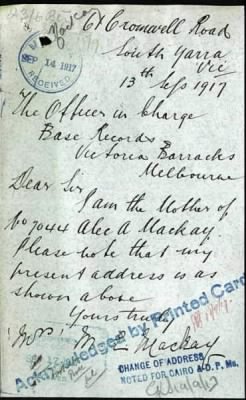 61 Cromwell Road
South Yarra
Vic
13th Sep 1917
RECEIVED
SEP 14 1917
The Officer in Charge
Base Records
Victoria Barracks
Melbourne
Dear Sir
I am the Mother of
No 7044 Alec A Mackay.
Please note that my
present address is as
shown above
Yours truly
Mrs M E Mackay
Acknowledged by Printed Card
CHANGE OF ADDRESS
NOTED FOR CAIRO & D.P. Ms.